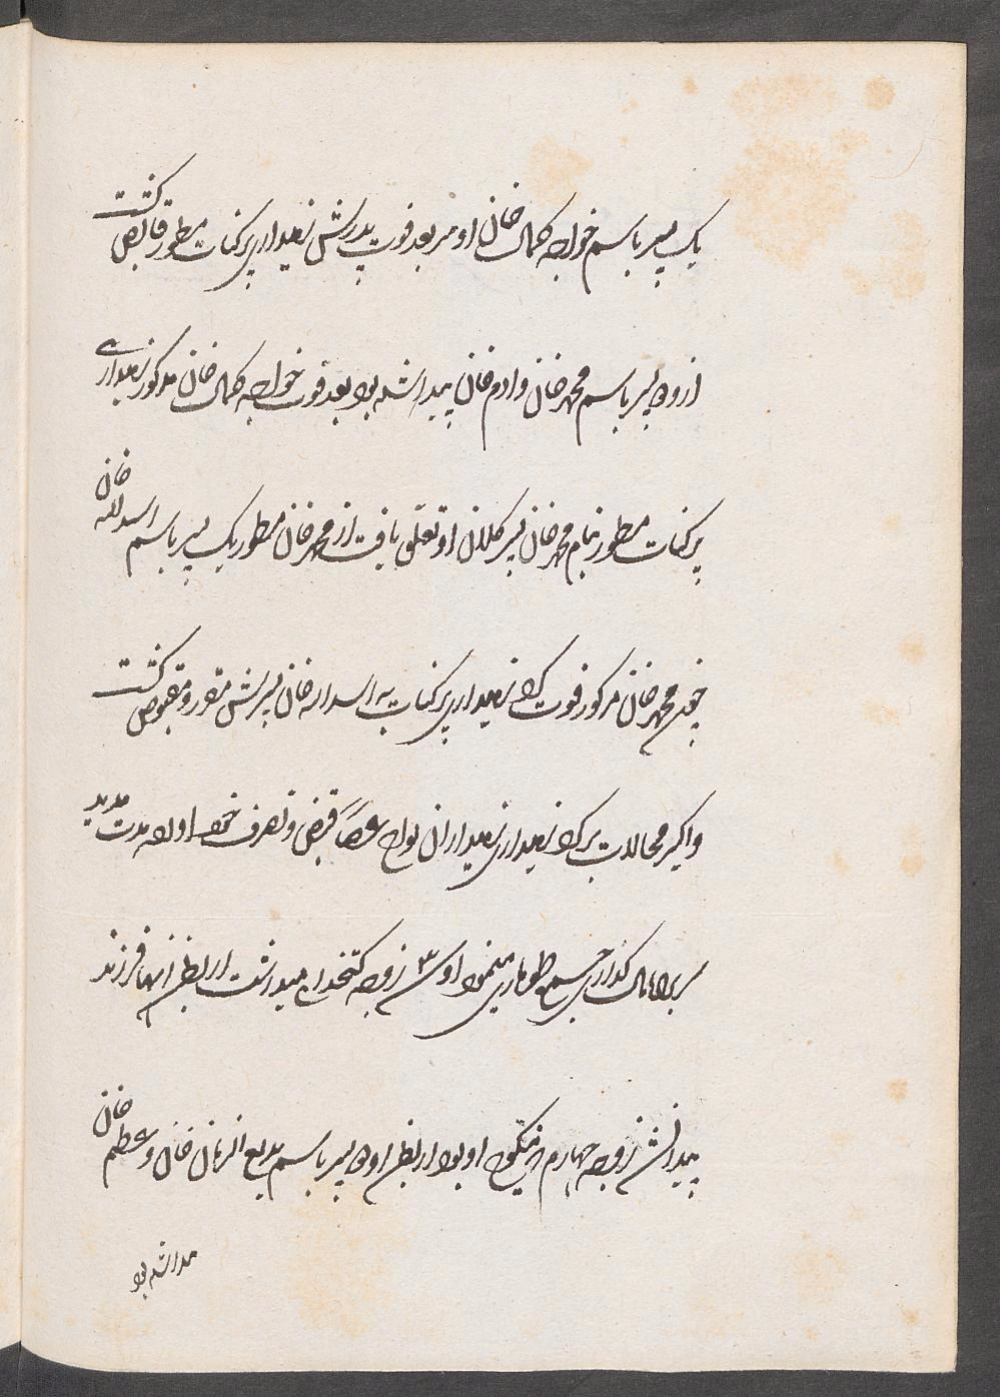 یک پسر باسم خواجه کمال خان او مر بعد فوت پدرش زمینداری پرکنات مسطور قابض گشت
از و دو پسر باسم محمد خان و ادم خان پیدا شده بود بعد فوت خواجه کمال خان مذکور زمینداری
پرکنات مسطور بنام محمد خان پسر کلان او تعلق یافت از محمد خان مسطور یک پسر باسم اسد الله خان
چون محمد خان مذکور فوت کرد زمینداری پرکنات به اسد الله خان پسرش مقرر و مقبوض گشت
و اکثر محالات پرکنه زمینداری زمینداران نواح غصباً قبض و تصرف خود اورده مدت مدید
سربراه مال گذاری جمع طوماری مینمود او سه ۳ زوجه کتخدای میداشت از بطن انها فرزند
پیدا نشد زوجه چهارم منکوحه او بود از بطن او دو پسر باسم بدیع الزمان خان و عظم خان
پیدا شده بود